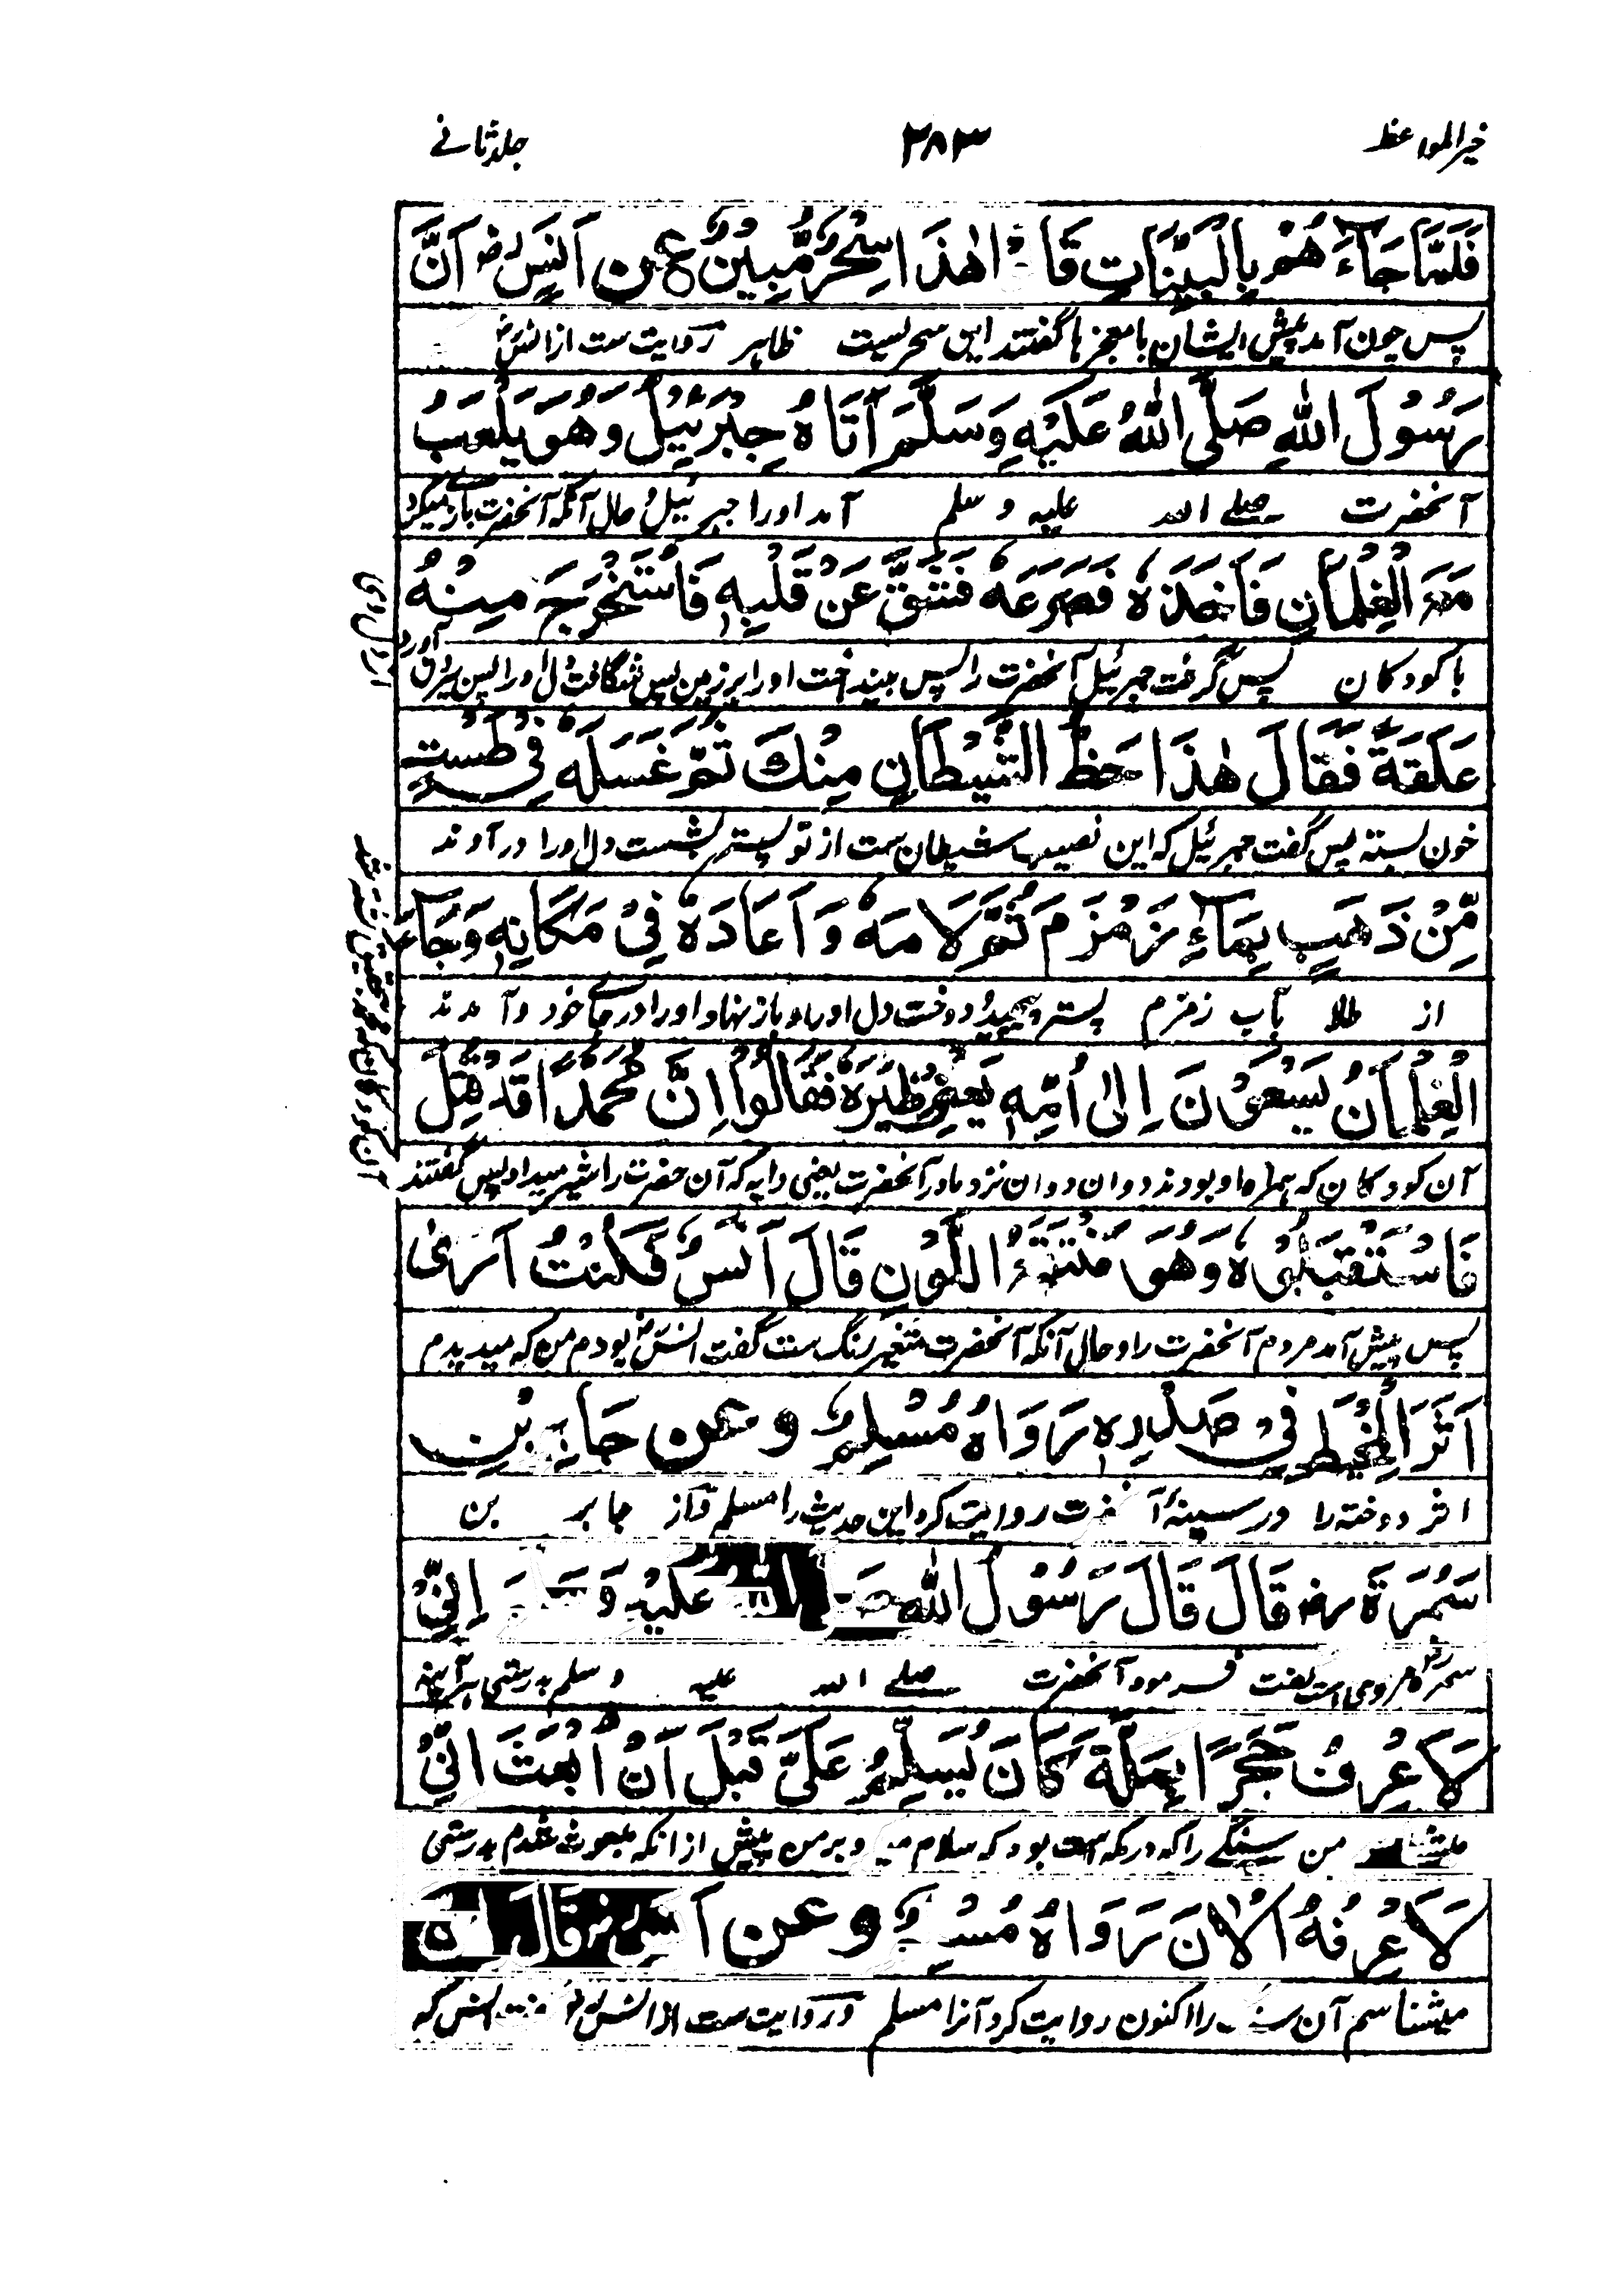 خیر المواعظ ۳۸۳ جلد ثانے
فَلَمَّا جَاءَهُمْ بِالْبَيِّنَاتِ هٰذَا سِحْرٌ مُّبِيْنٌ عَنْ اَنَسٍ رض اَنَّ
پس چون آمد پیش ایشان با معجزہا گفتند این سحریست ظاہر روایت ست از انس رض
رَسُوْلَ اللهِ صَلَّى اللهُ عَلَيْهِ وَسَلَّمَ اَتَاهُ جِبْرَئِيْلُ وَهُوَ يَلْعَبُ
آنحضرت صلے اللہ علیہ و سلم آمد اورا جبرئیل و حال آنکہ آنحضرت بازے میکرد
مَعَ الْغِلْمَانِ فَاَخَذَهٗ فَصَرَعَهٗ فَشَقَّ عَنْ قَلْبِهٖ فَاسْتَخْرَجَ مِنْهُ
با کودکان پس گرفت جبرئیل آنحضرت را پس بینداخت اورا بر زمین پس شگافت دل اورا پس بیرون آورد
از دل وی
عَلَقَةً فَقَالَ هٰذَا حَظُّ الشَّيْطَانِ مِنْكَ ثُمَّ غَسَلَهٗ فِيْ طَسْتٍ
خون بستہ پس گفت جبرئیل کہ این نصیب شیطان ست از تو پستر بشست دل اورا در آوند
مِّنْ ذَهَبٍ بِمَاءِ زَمْزَمَ ثُمَّ لَامَهٗ وَاَعَادَهٗ فِيْ مَكَانِهٖ وَجَاءَ
از طلا بآب زمزم پستر دوخت دل اورا و باز نہاد اورا در جاے خود و آمدند
الْغِلْمَانُ يَسْعَوْنَ اِلٰى اُمِّهٖ يَعْنِيْ ظِئْرَهٗ فَقَالُوْا اِنَّ مُحَمَّدًا قَدْ قُتِلَ
آن کودکان کہ ہمراہ او بودند دوان دوان نزد مادر آنحضرت یعنی دایہ کہ آن حضرت را شیر میداد پس گفتند
فَاسْتَقْبَلُوْهُ وَهُوَ مُنْتَقَعُ اللَّوْنِ قَالَ اَنَسٌ فَكُنْتُ اَرٰى
پس پیش آمد مردم آنحضرت را و حال آنکہ آنحضرت متغیر رنگ ست گفت انس رض بودم من کہ میدیدم
اَثَرَ الْمِخْيَطِ فِيْ صَدْرِهٖ رَوَاهُ مُسْلِمٌ وعن جَابِرِ بْنِ
اثر دوختہ را در سینۂ آنحضرت روایت کرد این حدیث را مسلم و از جابر بن
سَمُرَةَ رض قَالَ قَالَ رَسُوْلُ اللهِ عَلَيْهِ اِنِّيْ
سمرہ مروی است گفت فرمود آنحضرت صلے اللہ علیہ و سلم بدرستی ہر آئینہ
لَاَعْرِفُ حَجَرًا بِمَكَّةَ كَانَ يُسَلِّمُ عَلَيَّ قَبْلَ اَنْ اُبْعَثَ اِنِّيْ
من سنگے را کہ در مکہ است بود کہ سلام بر من پیش از انکہ مبعوث شدم بدرستی
لَاَعْرِفُهُ الْاٰنَ رَوَاهُ وعن
میشناسم آن را اکنون روایت کرد آنرا مسلم و روایت ست از انس کہ